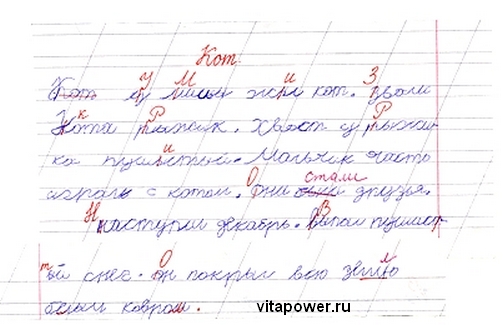 Кот.
у Миши жил кот. Звали
кота Рыжик. Хвост у Рыжи-
ка пушистый. Мальчик часто
играл с котом. Они стали друзья.
Наступил декабрь. Выпал пушист
ый снег. Он покрыл всю землю
белым ковром.
vitapower.ru